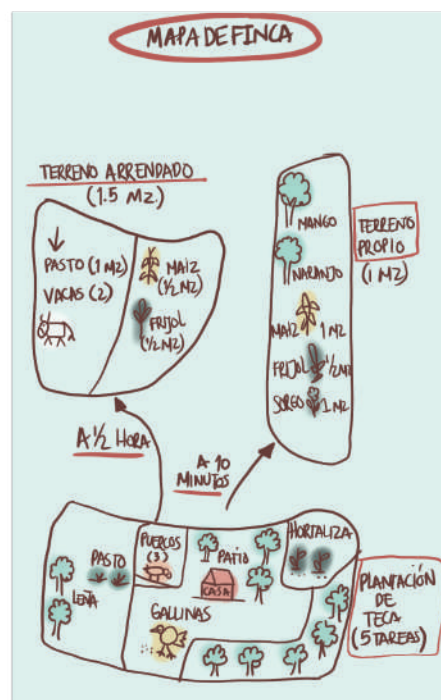 MAPA DE FINCA
TERRENO ARRENDADO
(1.5 MZ)
PASTO (1 MZ)
VACAS (2)
MAIZ
(1/2 MZ)
FRIJOL
(1/2 MZ)
MANGO
NARANJO
MAIZ 1 MZ
FRIJOL 1/2 MZ
SORGO 1 MZ
TERRENO
PROPIO
(1 MZ)
A 1/2 HORA
A 10
MINUTOS
PASTO
LEÑA
PUERCOS
(3)
PATIO
CASA
GALLINAS
HORTALIZA
PLANTACIÓN
DE
TECA
(5 TAREAS)